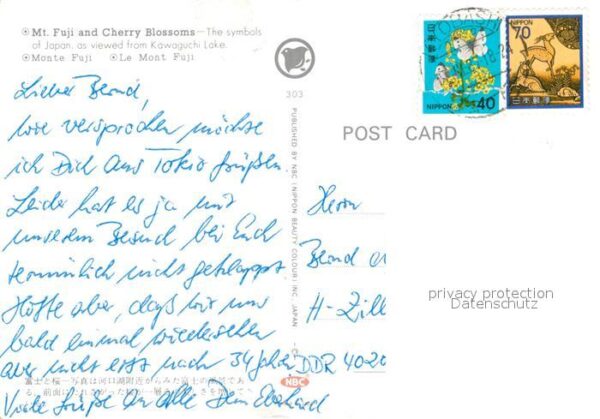 Mt. Fuji and Cherry Blossoms—The symbols
of Japan, as viewed from Kawaguchi Lake.
Monte Fuji Le Mont Fuji
NIPPON 40
70
NIPPON
日本郵便
303
PUBLISHED BY NBC (NIPPON BEAUTY COLOUR) INC. JAPAN
POST CARD
Lieber Bernd,
wie versprochen möchte
ich Dich aus Tokio grüßen.
Leider hat es ja mit
unserem Besuch bei Euch
terminlich nicht geklappt
Hoffe aber, daß wir uns
bald einmal wiedersehen
aber nicht erst nach 34 Jahren
Viele Grüße an alle Dein Eberhard
Herrn
Bernd
H-Zill
DDR 402
privacy protection
Datenschutz
富士と桜―写真は河口湖附近からみた富士の
NBC